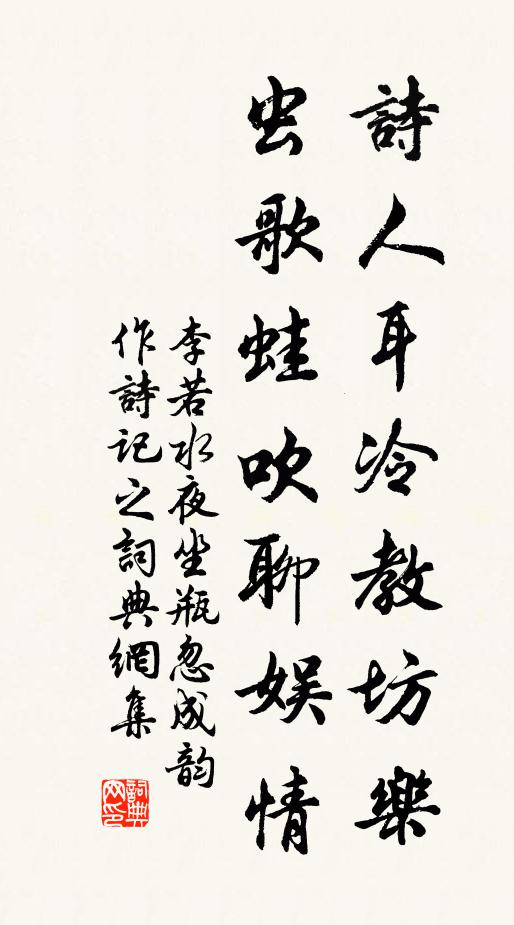 詩人耳冷教坊樂
虫歌蛙吹聊娱情
李若水夜坐瓶忽成韵
作詩記之詞典網集
詞典
网印